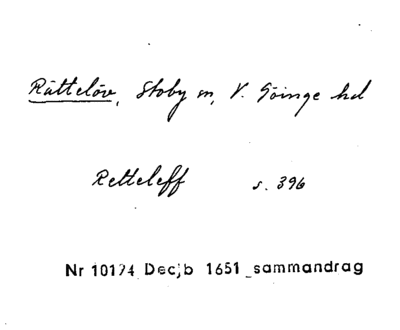 Rättelöv, Stoby sn, V. Göinge hd
Retteleff s. 396
Nr 10174 Dec;b 1651 sammandrag